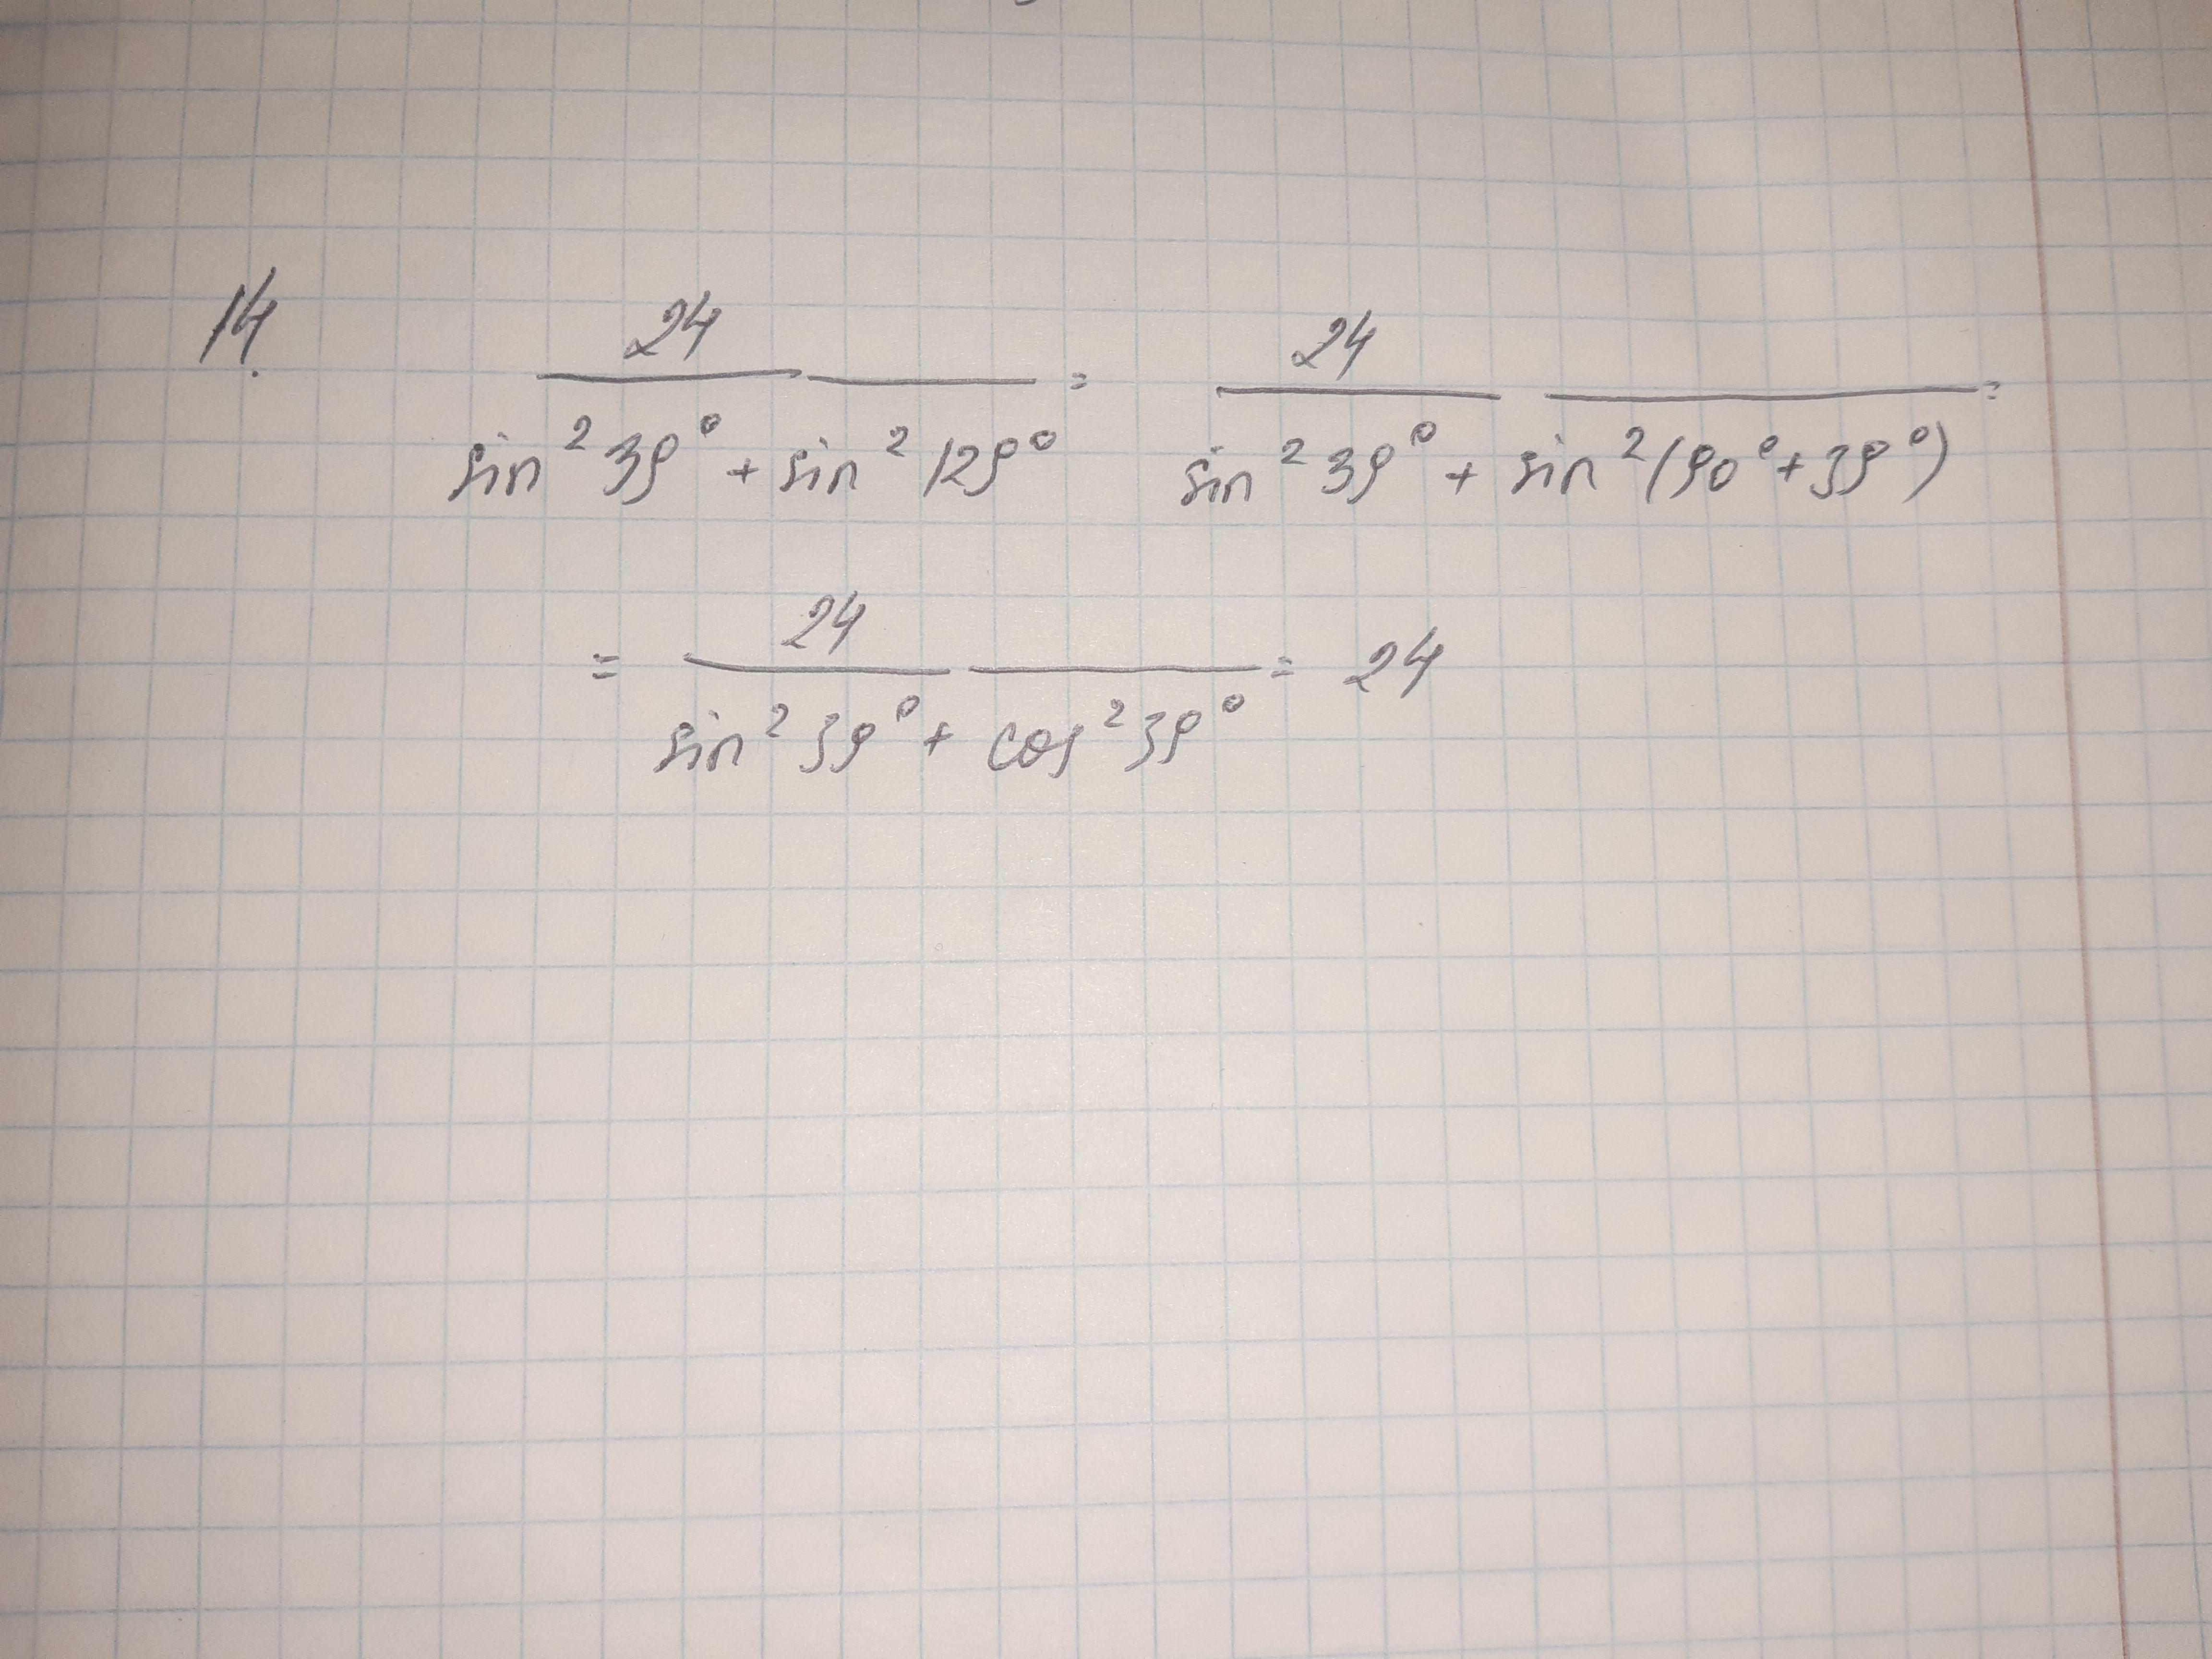 14. 24 / (sin² 39° + sin² 129°) = 24 / (sin² 39° + sin² (90° + 39°)) =
= 24 / (sin² 39° + cos² 39°) = 24